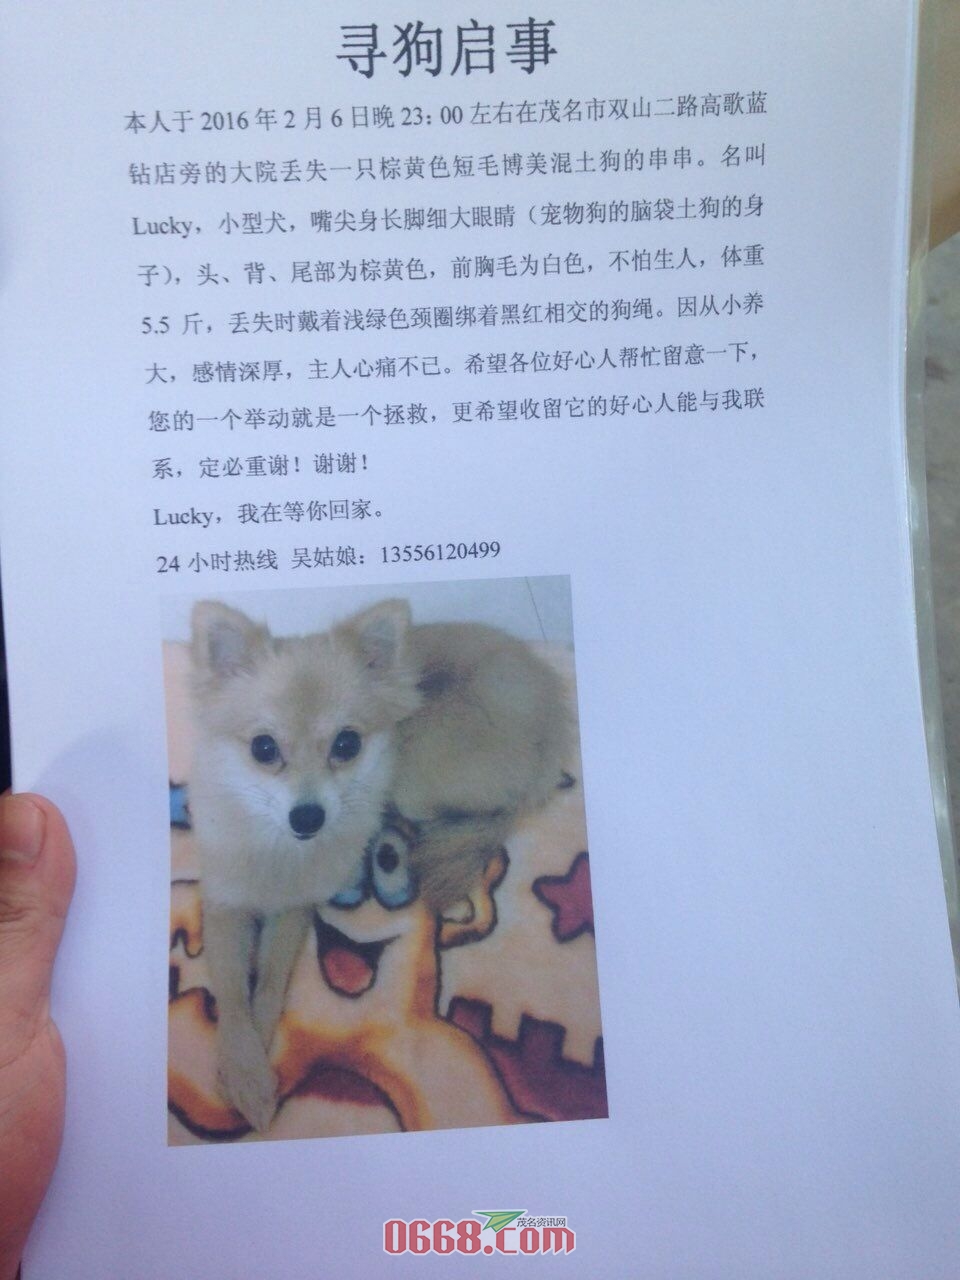 寻狗启事
本人于 2016 年 2 月 6 日晚 23：00 左右在茂名市双山二路高歌蓝
钻店旁的大院丢失一只棕黄色短毛博美混土狗的串串。名叫
Lucky，小型犬，嘴尖身长脚细大眼睛（宠物狗的脑袋土狗的身
子），头、背、尾部为棕黄色，前胸毛为白色，不怕生人，体重
5.5 斤，丢失时戴着浅绿色颈圈绑着黑红相交的狗绳。因从小养
大，感情深厚，主人心痛不已。希望各位好心人帮忙留意一下，
您的一个举动就是一个拯救，更希望收留它的好心人能与我联
系，定必重谢！谢谢！
Lucky，我在等你回家。
24 小时热线 吴姑娘：13556120499
茂名资讯网
0668.com